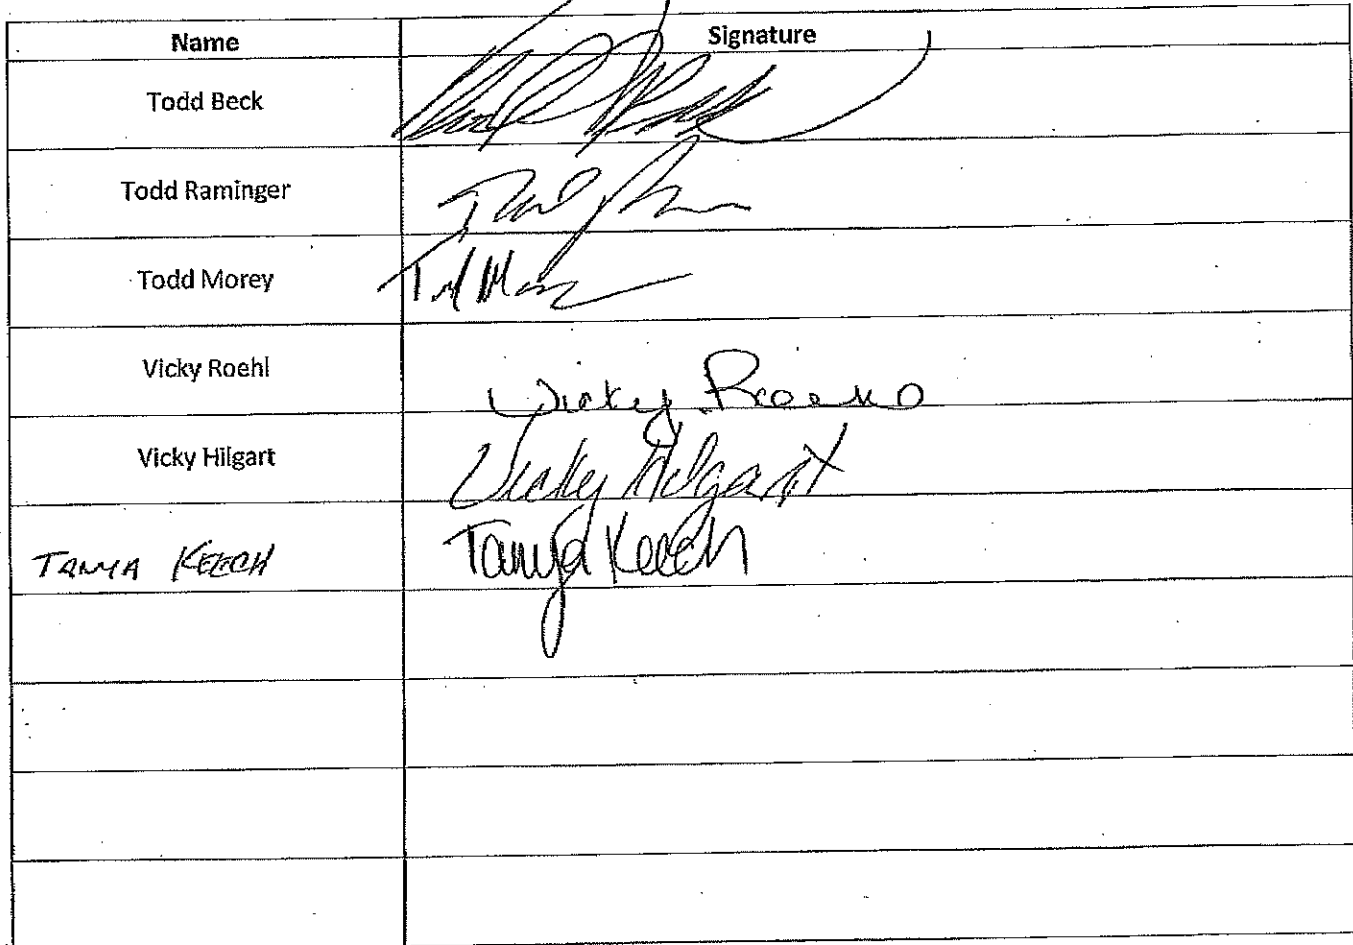 Name Signature
Todd Beck
Todd Raminger
Todd Morey
Vicky Roehl Vicky
Vicky Hilgart Vicky Hilgart
TANYA KEECH Tanya Keech